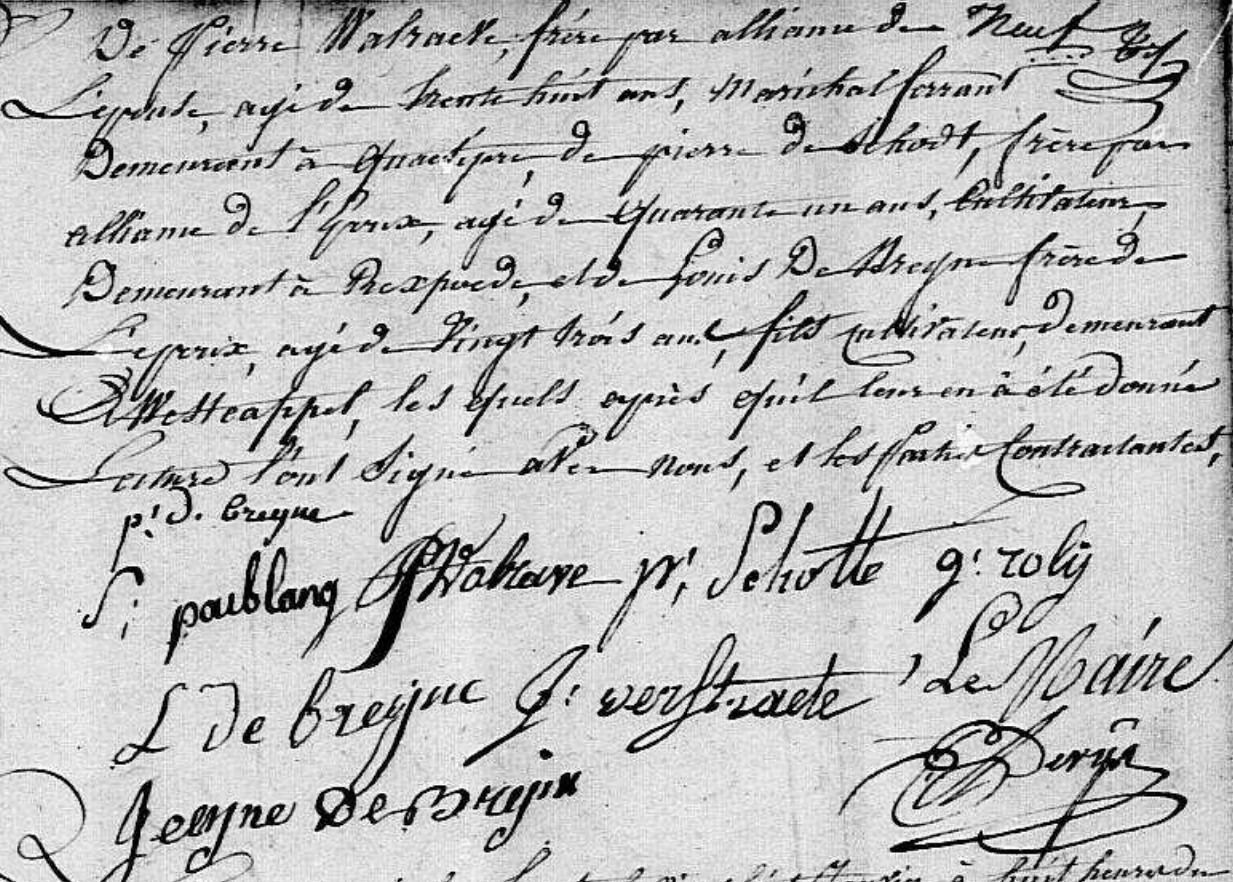 De Pierre Walraeve, frère par alliance de
L'epouse, agé de trente huit ans, Maréchal ferrant
Demeurant à Quaetÿpre, de pierre de Schodt, frère par
alliance de l'Epoux, agé de Quarante un ans, Cultivateur,
Demeurant à Rexpoede, et de Louis De Breyne frère de
L'epoux, agé de Vingt trois ans, fils cultivateur, demeurant
à Westcappel, les quels après qu'il leur en à été donnée
Lecture l'ont signé avec nous, et les parties Contractantes,
p: d. breyne
poublang PWalrave pr, Schotte g: rolÿ
L de breyne J: verstraete Le Maire
De Breyne
huit heures du